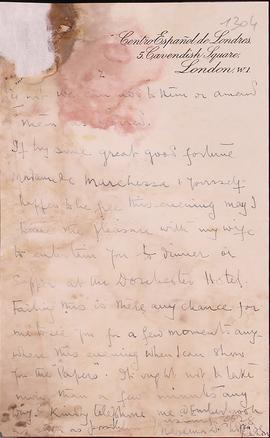 1304
Centro Español de Londres.
5, Cavendish Square,
London, W.1
is not we can not to them or amend
them
If by some great good fortune
Madame Marchessa & yourself
happen to be free this evening may I
have the pleasure with my wife
to entertain you to dinner or
supper at the Dorchester Hotel.
Failing this is there any chance for
me to see you for a few moments any
where this evening when I can show
you the "papers". It ought not to take
more than a few minutes any
way. Kindly telephone me @
as soon as possible